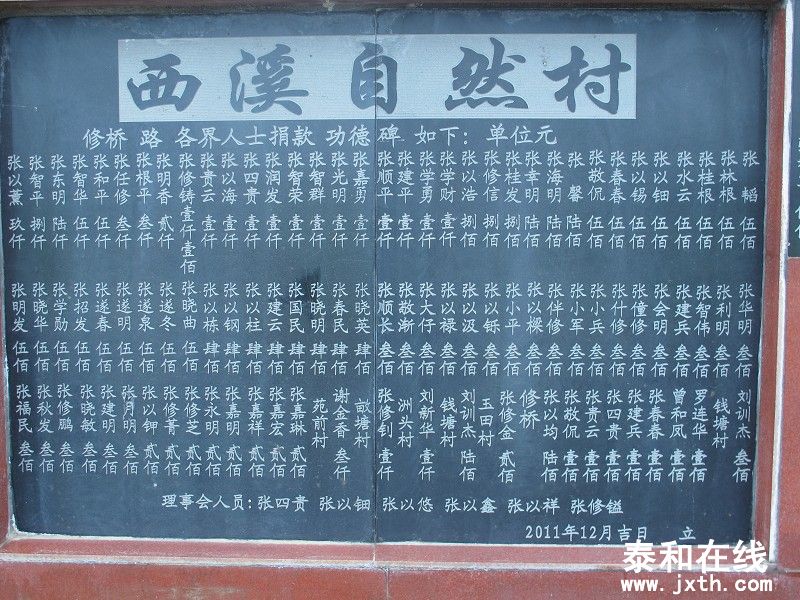 西溪自然村
修桥 路 各界人士捐款 功德碑 如下：单位元
张以薰 玖仟
张智平 捌仟
张东明 陆仟
张智华 伍仟
张和平 伍仟
张任修 叁仟
张根平 叁仟
张明香 贰仟
张修铸 壹仟壹佰
张贵云 壹仟
张以海 壹仟
张四贵 壹仟
张润发 壹仟
张智荣 壹仟
张智群 壹仟
张光明 壹仟
张嘉勇 壹仟
张顺平 壹仟
张建平 壹仟
张学勇 壹仟
张学财 壹仟
张以浩 捌佰
张修信 捌佰
张桂发 捌佰
张幸明 陆佰
张海明 陆佰
张馨 陆佰
张敬侃 伍佰
张春春 伍佰
张以锡 伍佰
张以钿 伍佰
张水云 伍佰
张桂根 伍佰
张林根 伍佰
张韬 伍佰
张明发 伍佰
张晓华 伍佰
张学勋 伍佰
张招发 伍佰
张遂春 伍佰
张遂明 伍佰
张遂泉 伍佰
张遂冬 伍佰
张晓曲 伍佰
张以栋 肆佰
张以钢 肆佰
张以柱 肆佰
张建云 肆佰
张国民 肆佰
张晓明 肆佰
张春民 肆佰
张晓英 肆佰
张顺长 叁佰
张敬渐 叁佰
张大仔 叁佰
张以禄 叁佰
张以汲 叁佰
张以铄 叁佰
张小平 叁佰
张以樑 叁佰
张伴修 叁佰
张小军 叁佰
张小兵 叁佰
张什修 叁佰
张僮修 叁佰
张会明 叁佰
张建兵 叁佰
张智伟 叁佰
张利明 叁佰
张华明 叁佰
张福民 叁佰
张秋发 叁佰
张修鹏 叁佰
张晓敏 叁佰
张建明 叁佰
张月明 叁佰
张以钾 贰佰
张修菁 贰佰
张修芝 贰佰
张永明 贰佰
张嘉明 贰佰
张嘉祥 贰佰
张嘉宏 贰佰
张嘉琳 贰佰
苑前村
谢金香 叁仟
畝塘村
张修钊 壹仟
洲头村
刘新华 壹仟
钱塘村
刘训杰 陆佰
玉田村
张修金 贰佰
修桥
张以均 陆佰
张敬侃 壹佰
张贵云 壹佰
张四贵 壹佰
张建兵 壹佰
张春春 壹佰
曾和凤 壹佰
罗连华 壹佰
钱塘村
刘训杰 叁佰
理事会人员：张四贵 张以钿 张以悠 张以鑫 张以祥 张修镒
2011年12月吉日 立
泰和在线
www.jxth.com